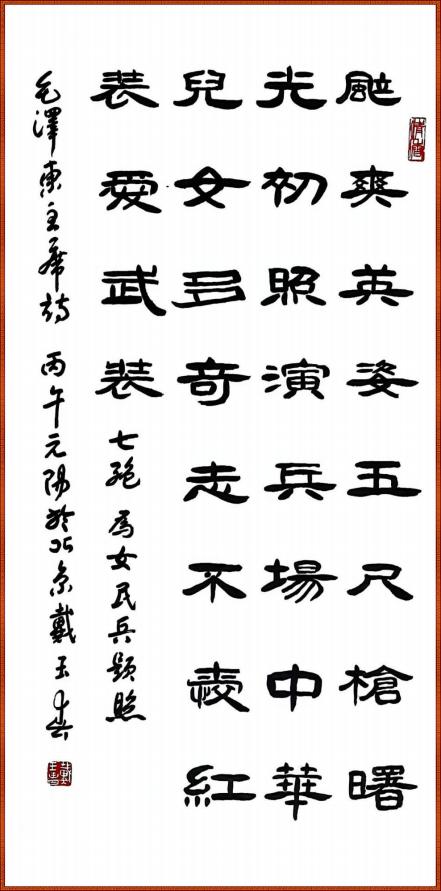 颯爽英姿五尺槍曙
光初照演兵場中華
兒女多奇志不爱紅
装爱武装 七絕 為女民兵題照
毛澤東主席詩 丙午元陽於北京戴玉